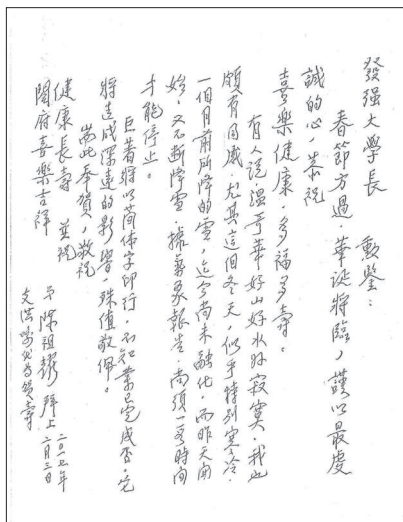 發强大學長 勳鑒：
春節方過，華誕將臨，謹以最虔
誠的心，恭祝
喜樂健康，多福多壽。
有人說溫哥華好山好水好寂寞，我也
頗有同感，尤其這個冬天，似乎特別寒冷，
一個月前所降的雪，迄今尚未融化，而昨天開
始，又不斷降雪，據氣象報告，尚須一段時間
才能停止。
巨著將以简体字印行，不知業已完成否，它
將造成深遠的影響，殊值敬佩。
耑此奉賀，敬祝
健康長壽 並祝
閤府喜樂吉祥
弟 陳祖耀 拜上
二〇一七年
二月三日
文瀅 賀壽